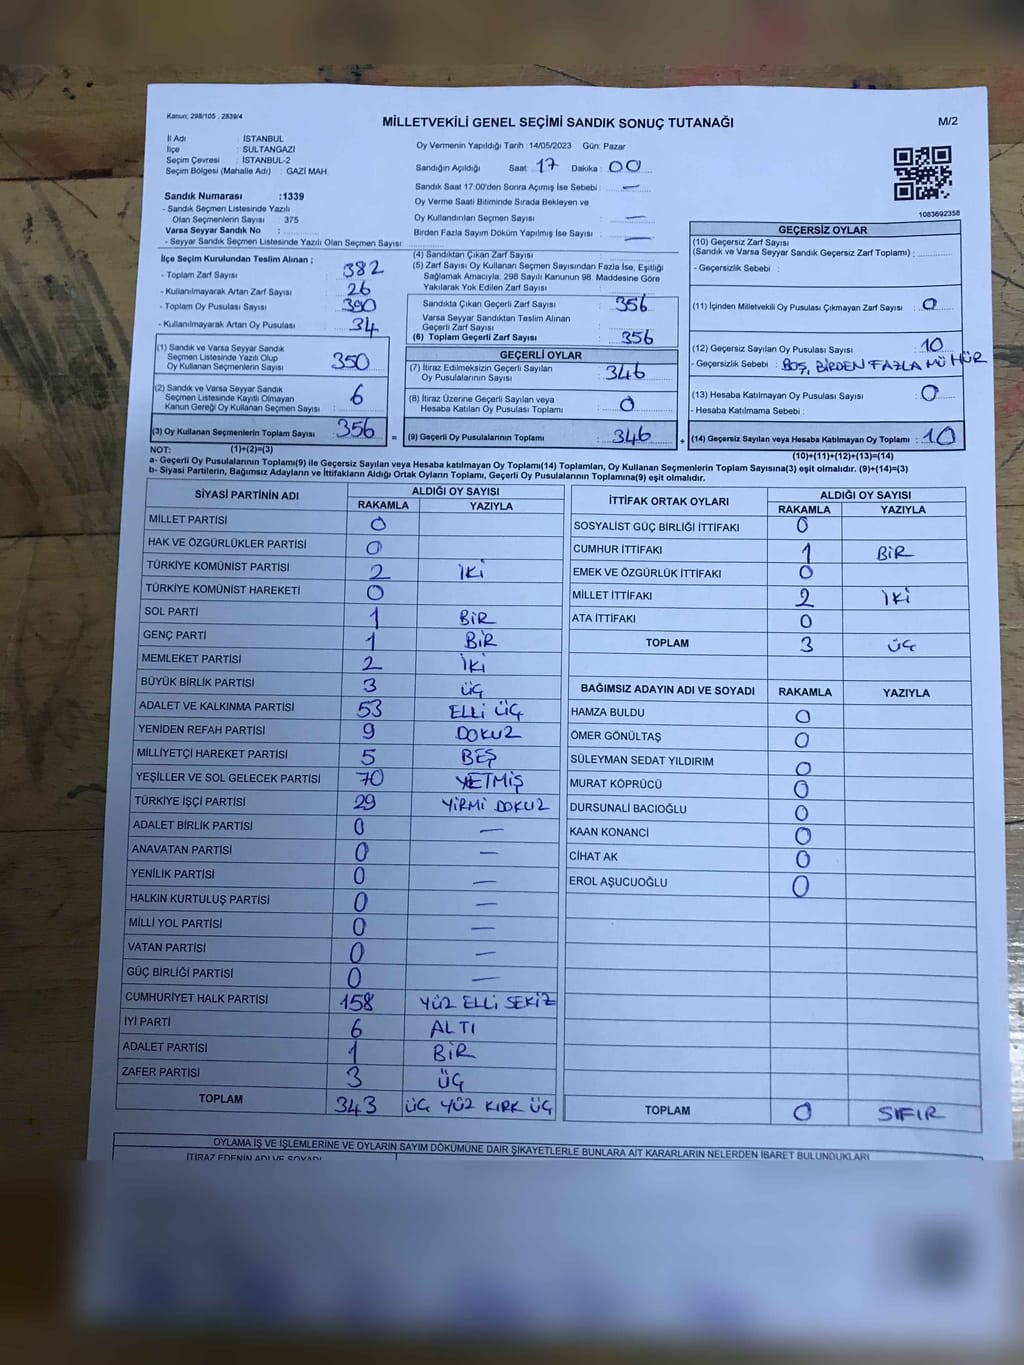 Kanun: 298/105 , 2839/4
MİLLETVEKİLİ GENEL SEÇİMİ SANDIK SONUÇ TUTANAĞI
M/2
İl Adı : İSTANBUL
İlçe : SULTANGAZİ
Seçim Çevresi : İSTANBUL-2
Seçim Bölgesi (Mahalle Adı) : GAZİ MAH.
Sandık Numarası :1339
- Sandık Seçmen Listesinde Yazılı
Olan Seçmenlerin Sayısı : 375
Varsa Seyyar Sandık No :
- Seyyar Sandık Seçmen Listesinde Yazılı Olan Seçmen Sayısı:
Oy Vermenin Yapıldığı Tarih : 14/05/2023 Gün: Pazar
Sandığın Açıldığı Saat: 17 Dakika: 00
Sandık Saat 17:00'den Sonra Açımış İse Sebebi : —
Oy Verme Saati Bitiminde Sırada Bekleyen ve
Oy Kullandırılan Seçmen Sayısı : —
Birden Fazla Sayım Döküm Yapılmış İse Sayısı : —
1083692358
İlçe Seçim Kurulundan Teslim Alınan ;
- Toplam Zarf Sayısı : 382
- Kullanılmayarak Artan Zarf Sayısı : 26
- Toplam Oy Pusulası Sayısı : 390
- Kullanılmayarak Artan Oy Pusulası : 34
(1) Sandık ve Varsa Seyyar Sandık
Seçmen Listesinde Yazılı Olup
Oy Kullanan Seçmenlerin Sayısı : 350
(2) Sandık ve Varsa Seyyar Sandık
Seçmen Listesinde Kayıtlı Olmayan
Kanun Gereği Oy Kullanan Seçmen Sayısı : 6
(3) Oy Kullanan Seçmenlerin Toplam Sayısı : 356
(1)+(2)=(3)
(4) Sandıktan Çıkan Zarf Sayısı :
(5) Zarf Sayısı Oy Kullanan Seçmen Sayısından Fazla İse, Eşitliği
Sağlamak Amacıyla; 298 Sayılı Kanunun 98. Maddesine Göre
Yakılarak Yok Edilen Zarf Sayısı :
Sandıkta Çıkan Geçerli Zarf Sayısı : 356
Varsa Seyyar Sandıktan Teslim Alınan
Geçerli Zarf Sayısı :
(6) Toplam Geçerli Zarf Sayısı : 356
GEÇERLİ OYLAR
(7) İtiraz Edilmeksizin Geçerli Sayılan
Oy Pusulalarının Sayısı : 346
(8) İtiraz Üzerine Geçerli Sayılan veya
Hesaba Katılan Oy Pusulası Toplamı : 0
= (9) Geçerli Oy Pusulalarının Toplamı : 346
GEÇERSİZ OYLAR
(10) Geçersiz Zarf Sayısı
(Sandık ve Varsa Seyyar Sandık Geçersiz Zarf Toplamı) :
- Geçersizlik Sebebi :
(11) İçinden Milletvekili Oy Pusulası Çıkmayan Zarf Sayısı : 0
(12) Geçersiz Sayılan Oy Pusulası Sayısı : 10
- Geçersizlik Sebebi : BOŞ, BİRDEN FAZLA MÜHÜR
(13) Hesaba Katılmayan Oy Pusulası Sayısı : 0
- Hesaba Katılmama Sebebi :
+ (14) Geçersiz Sayılan veya Hesaba Katılmayan Oy Toplamı : 10
(10)+(11)+(12)+(13)=(14)
NOT:
a- Geçerli Oy Pusulalarının Toplamı(9) ile Geçersiz Sayılan veya Hesaba katılmayan Oy Toplamı(14) Toplamları, Oy Kullanan Seçmenlerin Toplam Sayısına(3) eşit olmalıdır. (9)+(14)=(3)
b- Siyasi Partilerin, Bağımsız Adayların ve İttifakların Aldığı Ortak Oyların Toplamı, Geçerli Oy Pusulalarının Toplamına(9) eşit olmalıdır.
SİYASİ PARTİNİN ADI ALDIĞI OY SAYISI
RAKAMLA YAZIYLA
MİLLET PARTİSİ 0
HAK VE ÖZGÜRLÜKLER PARTİSİ 0
TÜRKİYE KOMÜNİST PARTİSİ 2 İKİ
TÜRKİYE KOMÜNİST HAREKETİ 0
SOL PARTİ 1 BİR
GENÇ PARTİ 1 BİR
MEMLEKET PARTİSİ 2 İKİ
BÜYÜK BİRLİK PARTİSİ 3 ÜÇ
ADALET VE KALKINMA PARTİSİ 53 ELLİ ÜÇ
YENİDEN REFAH PARTİSİ 9 DOKUZ
MİLLİYETÇİ HAREKET PARTİSİ 5 BEŞ
YEŞİLLER VE SOL GELECEK PARTİSİ 70 YETMİŞ
TÜRKİYE İŞÇİ PARTİSİ 29 YİRMİ DOKUZ
ADALET BİRLİK PARTİSİ 0 —
ANAVATAN PARTİSİ 0 —
YENİLİK PARTİSİ 0 —
HALKIN KURTULUŞ PARTİSİ 0 —
MİLLİ YOL PARTİSİ 0 —
VATAN PARTİSİ 0 —
GÜÇ BİRLİĞİ PARTİSİ 0 —
CUMHURİYET HALK PARTİSİ 158 YÜZ ELLİ SEKİZ
İYİ PARTİ 6 ALTI
ADALET PARTİSİ 1 BİR
ZAFER PARTİSİ 3 ÜÇ
TOPLAM 343 ÜÇ YÜZ KIRK ÜÇ
İTTİFAK ORTAK OYLARI ALDIĞI OY SAYISI
RAKAMLA YAZIYLA
SOSYALİST GÜÇ BİRLİĞİ İTTİFAKI 0
CUMHUR İTTİFAKI 1 BİR
EMEK VE ÖZGÜRLÜK İTTİFAKI 0
MİLLET İTTİFAKI 2 İKİ
ATA İTTİFAKI 0
TOPLAM 3 ÜÇ
BAĞIMSIZ ADAYIN ADI VE SOYADI RAKAMLA YAZIYLA
HAMZA BULDU 0
ÖMER GÖNÜLTAŞ 0
SÜLEYMAN SEDAT YILDIRIM 0
MURAT KÖPRÜCÜ 0
DURSUNALİ BACIOĞLU 0
KAAN KONANCİ 0
CİHAT AK 0
EROL AŞUCUOĞLU 0
TOPLAM 0 SIFIR
OYLAMA İŞ VE İŞLEMLERİNE VE OYLARIN SAYIM DÖKÜMÜNE DAİR ŞİKAYETLERLE BUNLARA AİT KARARLARIN NELERDEN İBARET BULUNDUKLARI
İTİRAZ EDENİN ADI VE SOYADI